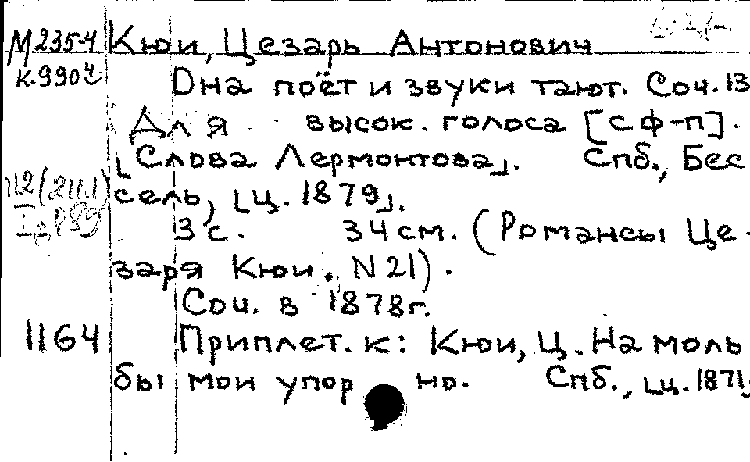 М 235-4 Кюи, Цезарь Антонович
К.9904 Она поёт и звуки тают. Соч. 13
Для высок. голоса [с ф-п].
[Слова Лермонтова]. Спб., Бес
сель, [ц. 1879].
3 с. 34 см. (Романсы Це-
заря Кюи. N 21).
Соч. в 1878г.
1164 Приплет. к: Кюи, Ц. На моль
бы мои упор но. Спб., [ц. 1871]